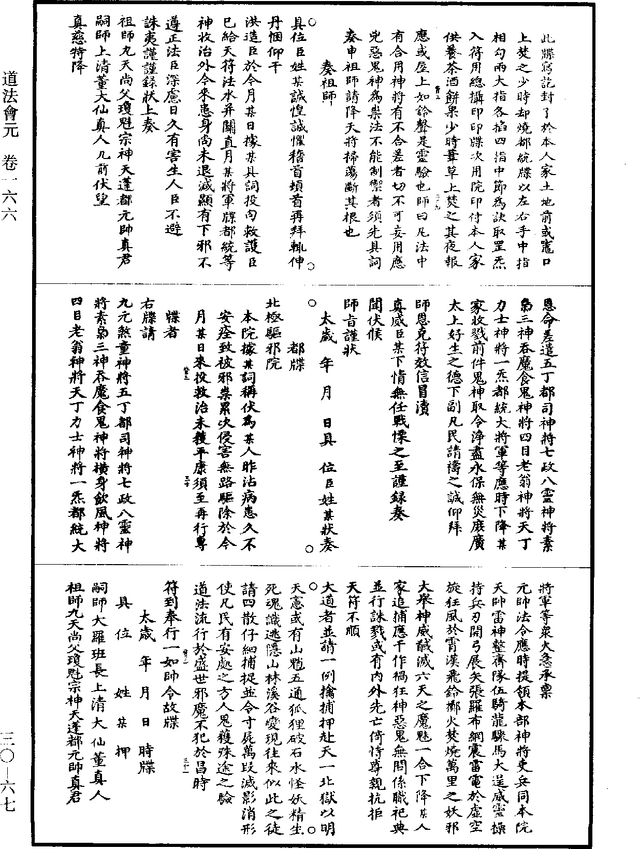 道法會元　卷一六六
三〇—六七
此牒寫訖封了於本人家土地前或竈口
上焚之少時却燒都統牒以左右手中指
相勾兩大指各掐四指中節為訣取罡炁
入符用總攝印印牒次用院印付本人家
供養茶酒餅果少時簟草上焚之其夜報
應或屋上如鈴聲是靈驗也師曰凡法中
有合用神將有不合差者切不可妄用應
兇惡鬼神為祟法不能制禦者須先具詞
奏申祖師請降天將掃蕩斷其根也
奏祖師
具位臣姓某誠惶誠懼稽首頓首再拜輒伸
丹悃仰干
洪造臣於今月某日據某具詞投向救護臣
已給天符法水并關直月某將軍牒都統等
神收治外今來患身尚未退減顯有下邪不
遵正法臣深慮日久有害生人臣不避
誅夷謹謹錄狀上奏
祖師九天尚父瓊魁宗神天蓬都元帥真君
嗣師上清董大仙真人几前伏望
真慈特降
恩命差遣五丁都司神將七政八靈神將素
梟三神吞魔食鬼神將四目老翁神將天丁
力士神將一炁都統大將軍等應時下降某
家收戮前件鬼神取令淨盡永保無災庶廣
太上好生之德下副凡民請禱之誠仰拜
師恩克符效信冒瀆
真威臣某下情無任戰慄之至謹錄奏
聞伏候
師旨謹狀
太歲　年　月　日具　位臣姓某狀奏
都牒
北極驅邪院
本院據某詞稱伏為某人昨沾病患久不
安痊致被邪祟累次侵害無路驅除於今
月某日來投救治未獲平康須至再行專
牒者
右牒請
九元煞童神將五丁都司神將七政八靈神
將素梟三神吞魔食鬼神將橫身飲風神將
四目老翁神將天丁力士神將一炁都統大
將軍等眾火急承稟
元帥法令應時提領本部神將吏兵同本院
天帥雷神整齊隊伍騎龍騾馬大逞威靈操
持兵刃開弓展矢張羅布網震雷電於虛空
旋狂風於霄漢飛鈴擲火焚燒萬里之妖邪
大舉神威馘滅六天之魔魅一合下降某人
家追捕應干作禍狂神惡鬼無關係職祀典
並行誅戮或有內外先亡倚恃尊親抗拒
天符不順
大道者並請一例擒捕押赴天一北獄以明
天憲或有山魈五通狐狸破石水怪妖精生
死魂識逃隱山林溪谷變現往來似此之徒
請四散仔細捕捉並令寸屍萬段滅影消形
使凡民有安處之方人鬼獲殊途之驗
道法流行於盛世邪魔不犯於昌時
符到奉行一如帥令故牒
太歲　年　月　日　時牒
具　位　姓　某　押
嗣師大羅班長上清大仙董真人
祖師九天尚父瓊魁宗神天蓬都元帥真君